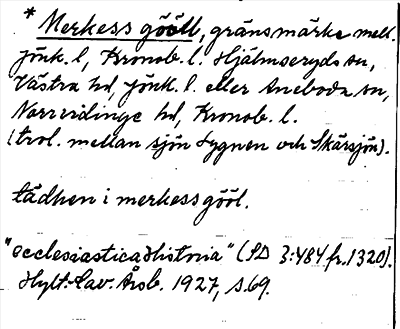 * Merkess gööll, gränsmärke mell.
Jönk. l, Kronob. l. Hjälmseryds sn,
Västra hd, Jönk. l. eller Aneboda sn,
Norrvidinge hd, Kronob. l.
(trol. mellan sjön Lygnen och Skärsjön).
tädhen i merkess gööl.
"ecclesiastica Historia" (SD 3:484 fr. 1320).
Hylt.-Cav. Årsb. 1927, s. 69.